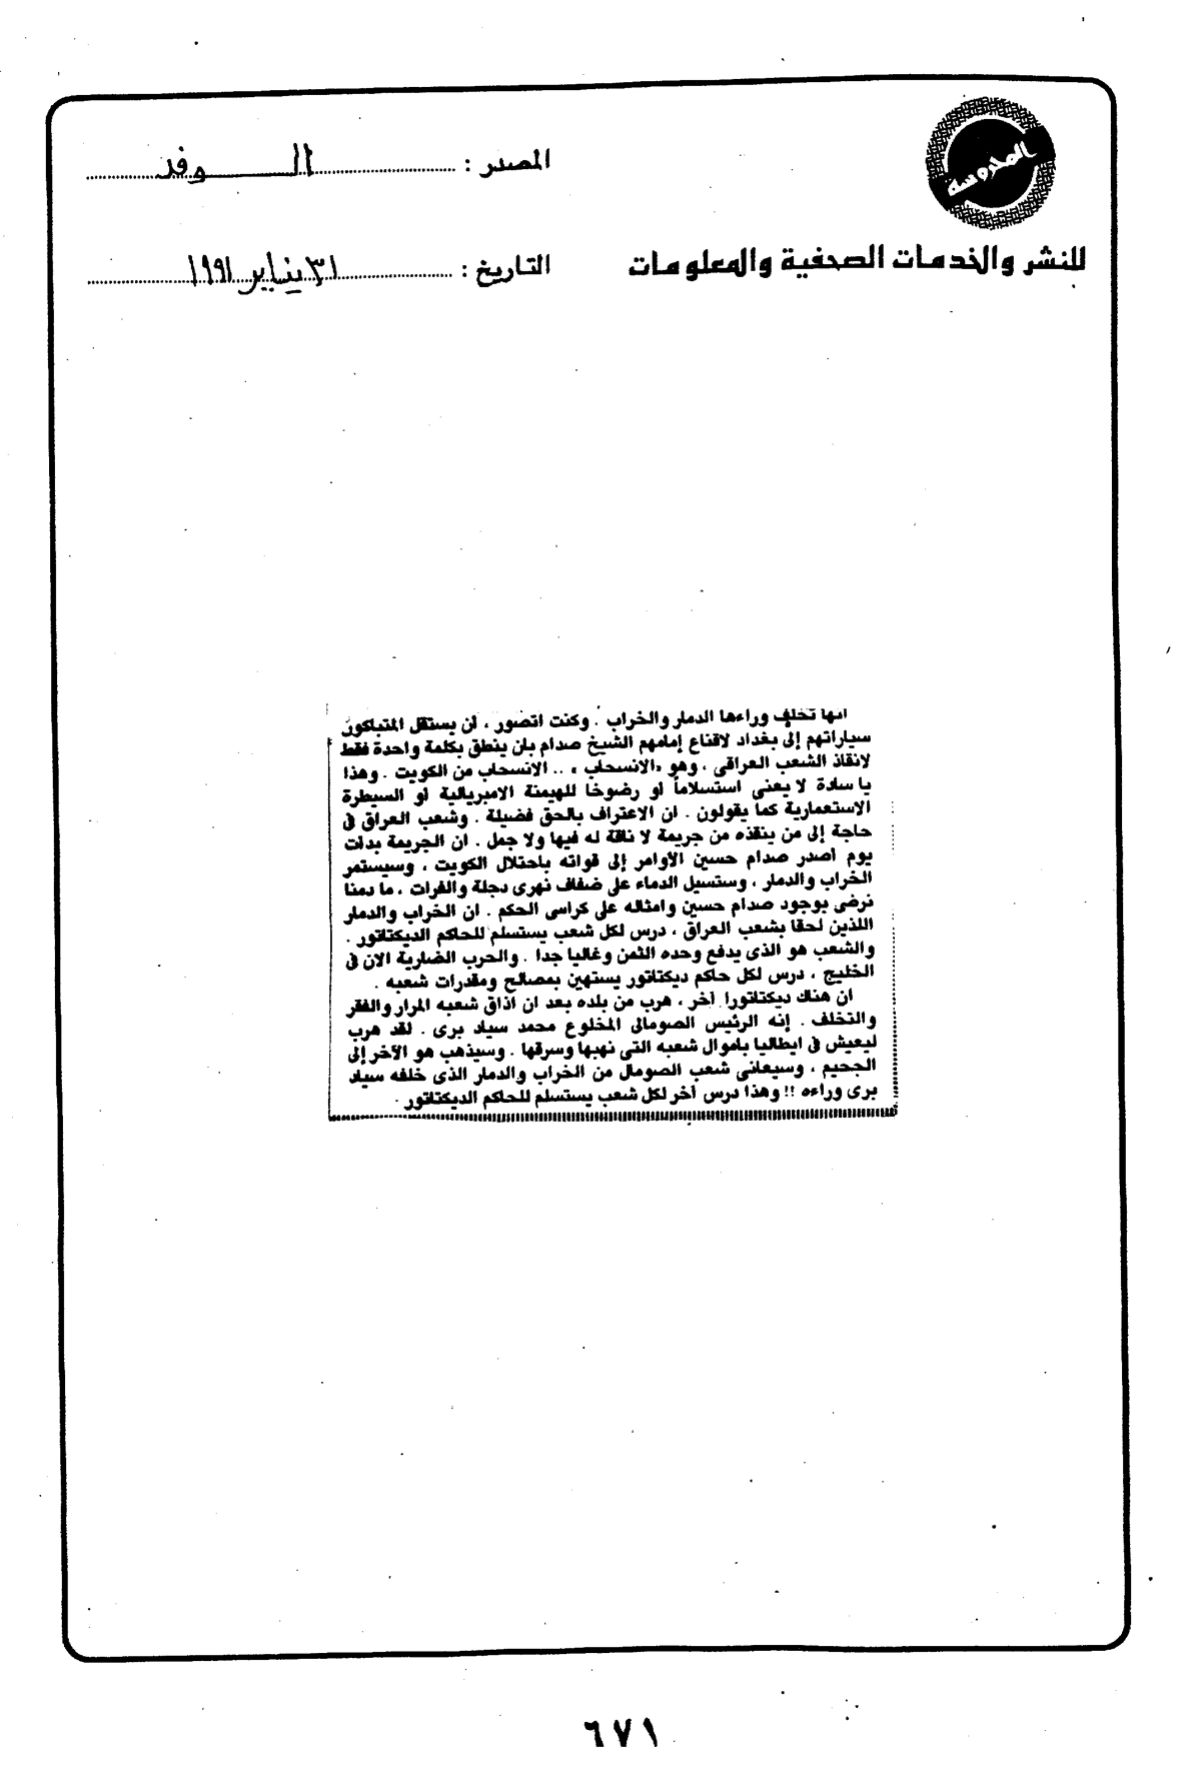 المحروسة
المصدر : الـــوفد
للنشر والخدمات الصحفية والمعلومات
التاريخ : ٣١ يناير ١٩٩١
انها تخلف وراءها الدمار والخراب . وكنت اتصور ، ان يستقل المتباكون
سياراتهم إلى بغداد لاقناع إمامهم الشيخ صدام بان ينطق بكلمة واحدة فقط
لانقاذ الشعب العراقى ، وهو «الانسحاب» .. الانسحاب من الكويت . وهذا
يا سادة لا يعنى استسلاماً او رضوخا للهيمنة الامبريالية او السيطرة
الاستعمارية كما يقولون . ان الاعتراف بالحق فضيلة . وشعب العراق فى
حاجة إلى من ينقذه من جريمة لا ناقة له فيها ولا جمل . ان الجريمة بدات
يوم اصدر صدام حسين الأوامر إلى قواته باحتلال الكويت ، وسيستمر
الخراب والدمار ، وستسيل الدماء على ضفاف نهرى دجلة والفرات ، ما دمنا
نرضى بوجود صدام حسين وامثاله على كراسى الحكم . ان الخراب والدمار
اللذين لحقا بشعب العراق ، درس لكل شعب يستسلم للحاكم الديكتاتور .
والشعب هو الذى يدفع وحده الثمن وغاليا جدا . والحرب الضارية الان فى
الخليج ، درس لكل حاكم ديكتاتور يستهين بمصالح ومقدرات شعبه .
ان هناك ديكتاتورا آخر ، هرب من بلده بعد ان اذاق شعبه المرار والفقر
والتخلف . إنه الرئيس الصومالى المخلوع محمد سياد برى . لقد هرب
ليعيش فى ايطاليا باموال شعبه التى نهبها وسرقها . وسيذهب هو الآخر إلى
الجحيم ، وسيعانى شعب الصومال من الخراب والدمار الذى خلفه سياد
برى وراءه !! وهذا درس آخر لكل شعب يستسلم للحاكم الديكتاتور .
٦٧١